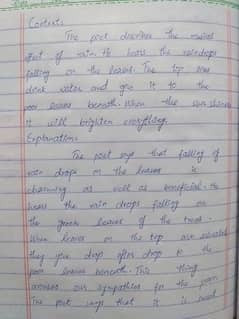 Context:
The poet describes the musical
effect of rain. He hears the raindrops
falling on the leaves. The top ones
drink water and give it to the
poor leaves beneath. When the sun shines
it will brighten everything.
Explanation:
The poet says that falling of
rain drops on the leaves is
charming as well as beneficial. He
hears the rain drops falling on
the green leaves of the trees.
When leaves on the top are
they give drop after drop to the
poor leaves beneath. This thing
arouses our sympathies for the poor.
The poet says that it is